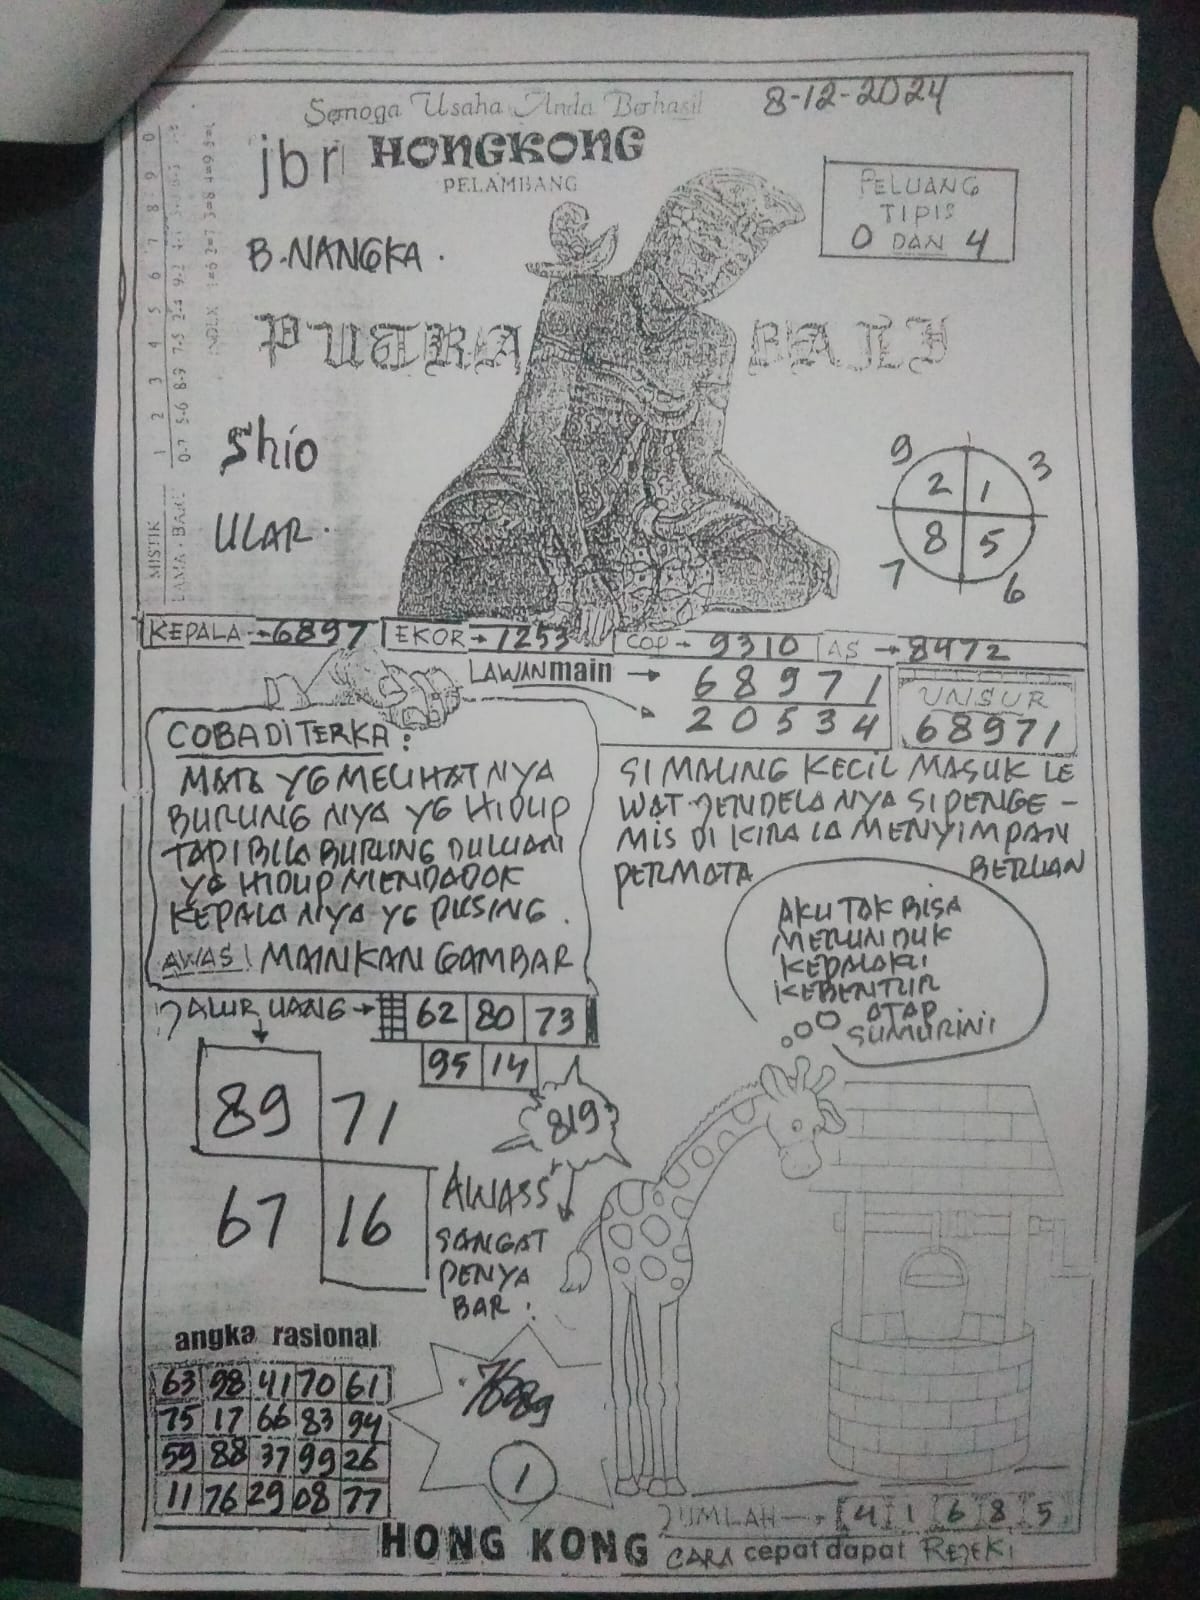 Semoga Usaha Anda Berhasil
8-12-2024
jbr HONGKONG
PELAMBANG
PELUANG
TIPIS
0 DAN 4
B.NANGKA.
PUTRA BALI
Shio
ULAR.
MISTIK
1 2 3 4 5 6 7 8 9 0
9 3
2 1
8 5
7 6
KEPALA → 6897 EKOR → 1253 COP → 9310 AS → 8472
LAWAN main → 68971
20534
UNSUR
68971
COBA DITERKA:
MATA YG MELIHAT NYA
BURUNG NYA YG HIDUP
TAPI BILA BURUNG DULUAN
YG HIDUP MENDADOK
KEPALA NYA YG PUSING.
AWAS! MAINKAN GAMBAR
SI MALING KECIL MASUK LE
WAT JENDELA NYA SI PENGE-
MIS DI KIRA IA MENYIMPAN
PERMATA BERLIAN
AKU TAK BISA
MERUNDUK
KEPALAKU
KEBENTUR
ATAP
SUMUR INI
JALUR UANG → 62 80 73
95 14
89 71
67 16
819
AWASS
SANGAT
PENYA
BAR:
angka rasional
63 98 41 70 61
75 17 66 83 94
59 88 37 99 26
11 76 29 08 77
1
JUMLAH → 4 1 6 8 5
HONG KONG CARA cepat dapat REJEKI